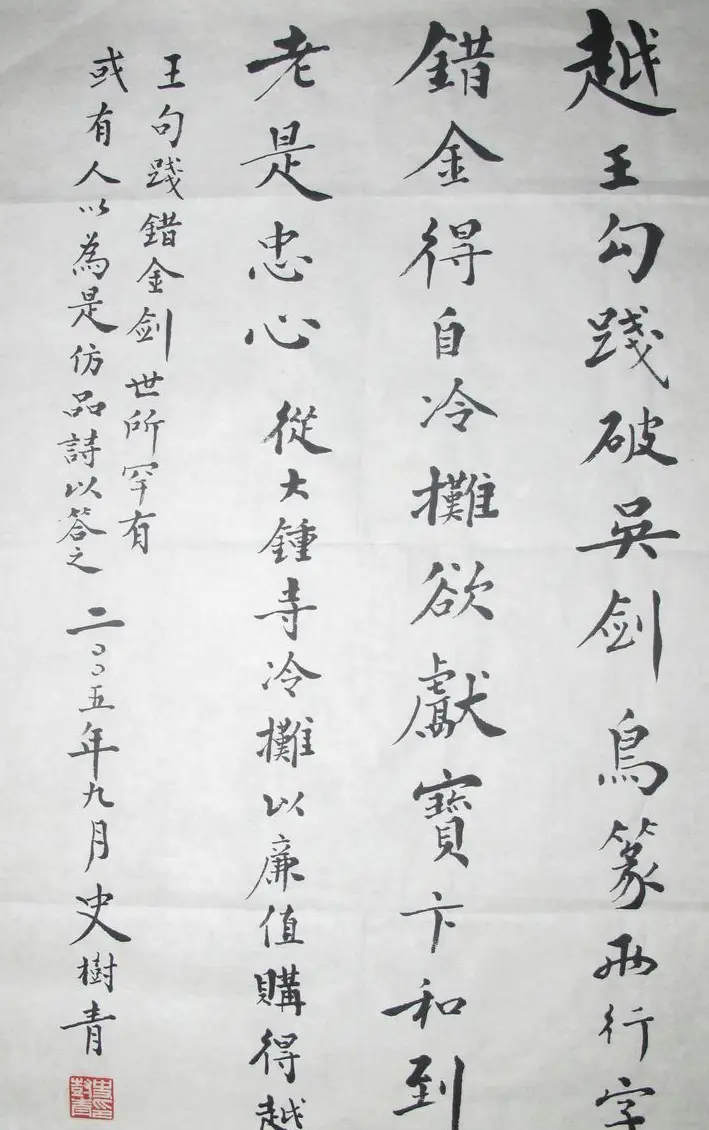 越王勾踐破吳剑鳥篆两行字
錯金得自冷攤欲獻寶卞和到
老是忠心 從大鍾寺冷攤以廉值購得越
王句踐錯金剑世所罕有
或有人以為是仿品詩以答之 二〇〇五年九月 史樹青